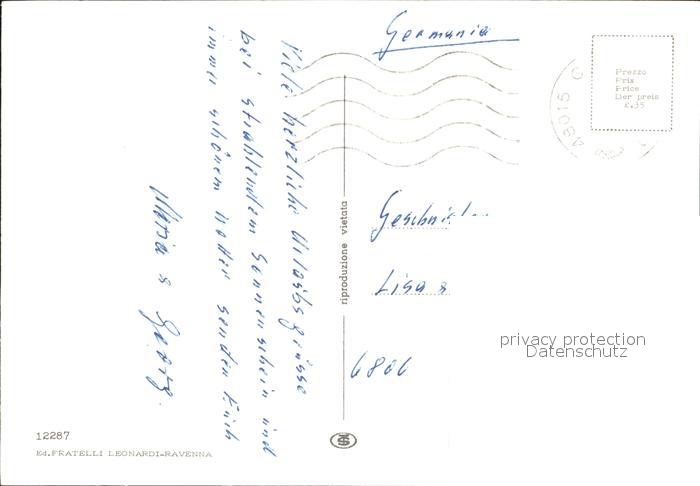 Germania
Prezzo
Prix
Price
Der preis
£.35
48015 C
Viele herzliche Urlaubsgrüsse
bei strahlendem Sonnenschein und
immer schönem Wetter senden Euch
Maria & Georg.
riproduzione vietata
Geschwist...
Lisa &
privacy protection
Datenschutz
12287
Ed.FRATELLI LEONARDI-RAVENNA